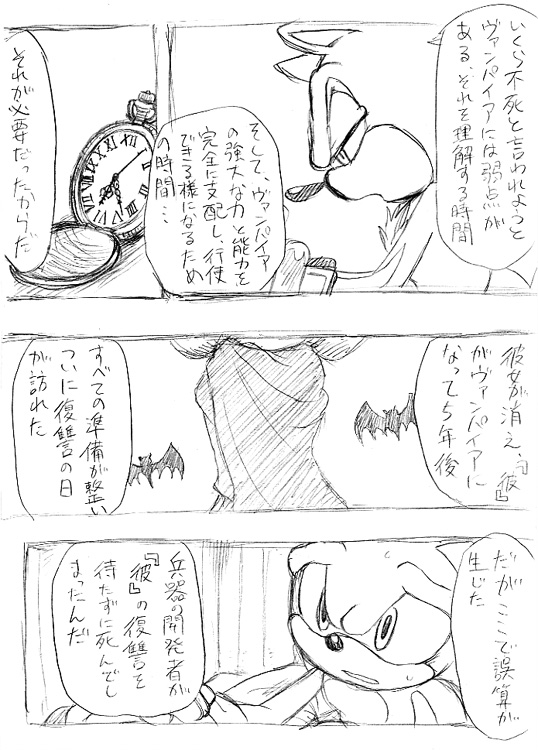 いくら不死と言われようと
ヴァンパイアには弱点が
ある、それを理解する時間
そして、ヴァンパイア
の強大な力と能力を
完全に支配し、行使
できる様になるため
の時間…
それが必要だったからだ
彼女が消え、『彼』
がヴァンパイアに
なって5年後
すべての準備が整い
ついに復讐の日
が訪れた
だがここで誤算が
生じた
兵器の開発者が
『彼』の復讐を
待たずに死んでし
まったんだ